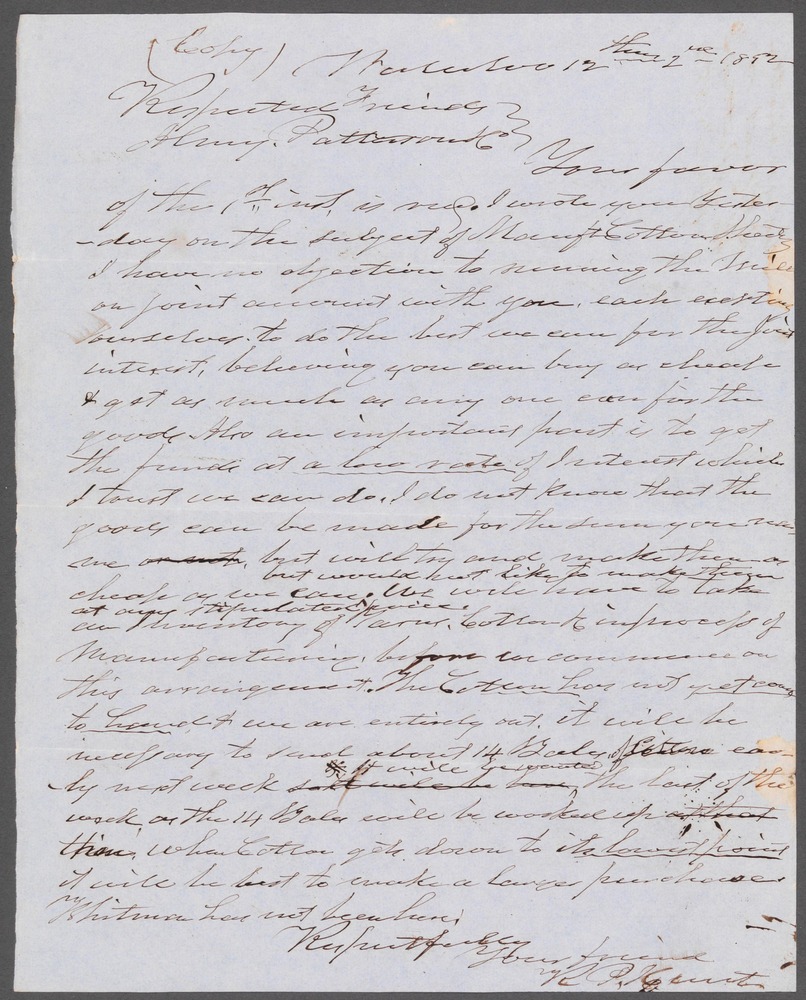 (Copy) Waterloo 12 1852
Respected Friends
Almy, Patterson & Co
Your favor
of the 1st inst, is recd. I wrote you Yester-
-day on the subject of Manuft Cotton Sheets
I have no objection to running the Mill
on joint account with you, each exerting
ourselves to do the best we can for the Joint
interest, believing you can buy as cheap
& get as much as any one can for the
goods. Also an important part is to get
the funds at a low rate of Interest which
I trust we can do, I do not know that the
goods can be made for the sum you na-
me or not, but will try and make them as
but would not like to make them
cheap as we can. We will have to take
at any stipulated price.
an Inventory of Warns, Cotton & in process of
Manufacturing, before we commence on
this arrangement. The Cotton has not yet come
to hand & we are entirely out, it will be
necessary to send about 14 Bales of Cotton ear-
it will be wanted
-ly next week so it will be here, the last of the
week as the 14 Bales will be worked up at that
time, when Cotton gets down to its lowest point
it will be best to make a larger purchase.
Whitman has not been here.
Respectfully
Your friend
R. P. Hunt